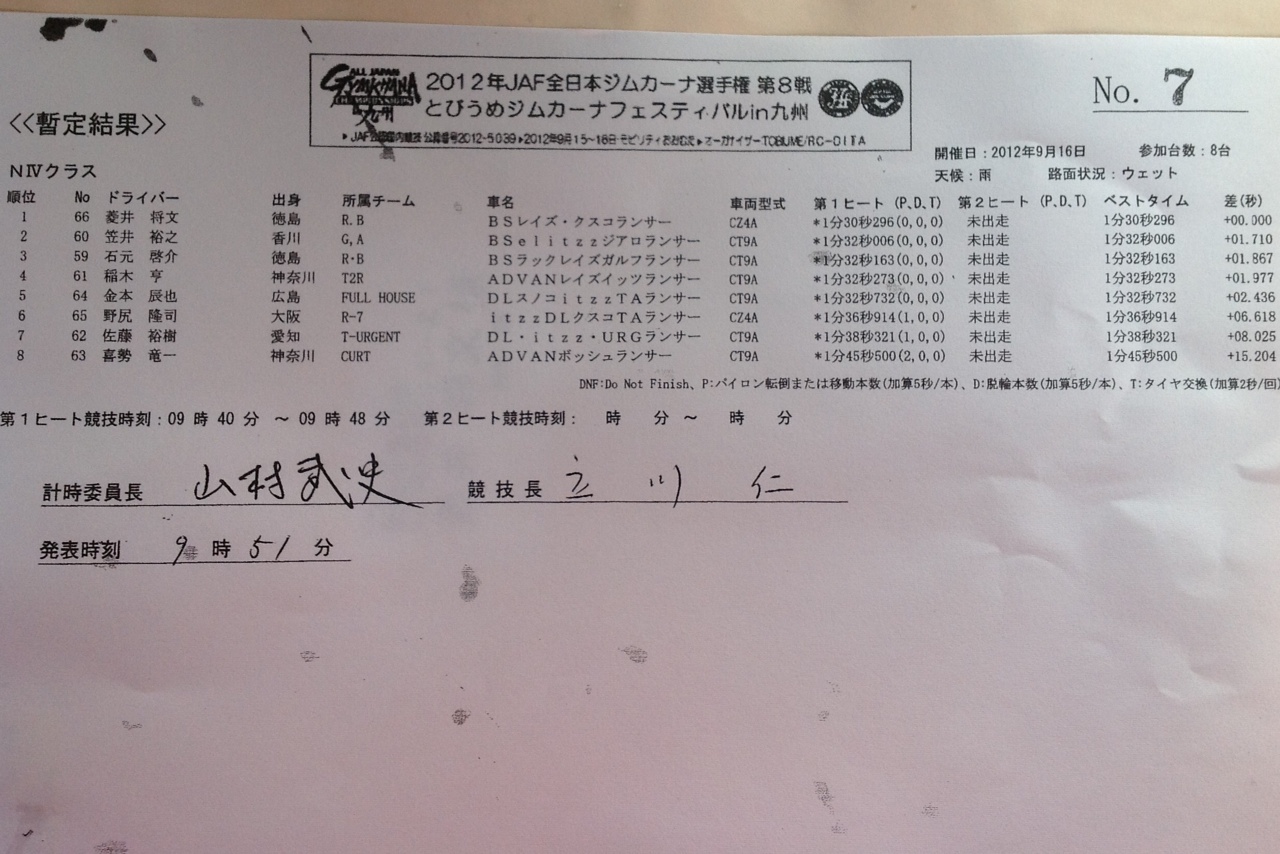 ALL JAPAN
GYMKHANA
CHAMPIONSHIPS
in 九州
2012年JAF全日本ジムカーナ選手権 第8戦
とびうめジムカーナフェスティバルin九州
▶JAF公認国内競技 公認番号2012-5039▶2012年9月15~16日 モビリティおおむた▶オーガナイザーTOBIUME/RC-OITA
No. 7
<<暫定結果>>
開催日:2012年9月16日 参加台数:8台
NⅣクラス
天候:雨 路面状況:ウェット
順位 No ドライバー 出身 所属チーム 車名 車両型式 第1ヒート (P,D,T) 第2ヒート (P,D,T) ベストタイム 差(秒)
1 66 菱井 将文 徳島 R.B BSレイズ・クスコランサー CZ4A *1分30秒296(0,0,0) 未出走 1分30秒296 +00.000
2 60 笠井 裕之 香川 G,A BSelitzzジアロランサー CT9A *1分32秒006(0,0,0) 未出走 1分32秒006 +01.710
3 59 石元 啓介 徳島 R・B BSラックレイズガルフランサー CT9A *1分32秒163(0,0,0) 未出走 1分32秒163 +01.867
4 61 稲木 亨 神奈川 T2R ADVANレイズイッツランサー CT9A *1分32秒273(0,0,0) 未出走 1分32秒273 +01.977
5 64 金本 辰也 広島 FULL HOUSE DLスノコitzzTAランサー CT9A *1分32秒732(0,0,0) 未出走 1分32秒732 +02.436
6 65 野尻 隆司 大阪 R-7 itzzDLクスコTAランサー CZ4A *1分36秒914(1,0,0) 未出走 1分36秒914 +06.618
7 62 佐藤 裕樹 愛知 T-URGENT DL・itzz・URGランサー CT9A *1分38秒321(1,0,0) 未出走 1分38秒321 +08.025
8 63 喜勢 竜一 神奈川 CURT ADVANボッシュランサー CT9A *1分45秒500(2,0,0) 未出走 1分45秒500 +15.204
DNF:Do Not Finish、P:パイロン転倒または移動本数(加算5秒/本)、D:脱輪本数(加算5秒/本)、T:タイヤ交換(加算2秒/回)
第1ヒート競技時刻:09 時 40 分 ~ 09 時 48 分 第2ヒート競技時刻: 時 分 ~ 時 分
計時委員長 山村武史 競技長 立川 仁
発表時刻 9 時 51 分